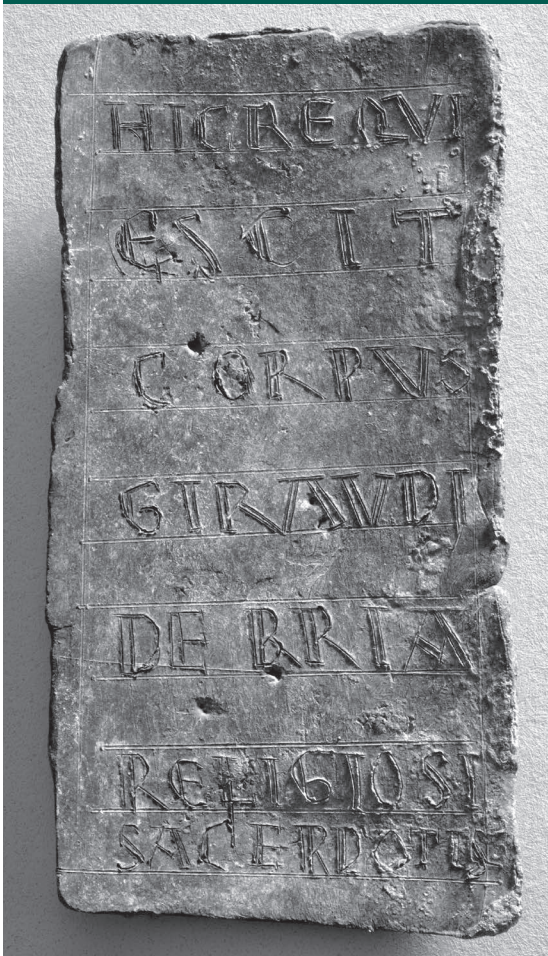 HIC REQVI
ESCIT
CORPVS
GIRAVDI
DE BRIA
RELIGIOSI
SACERDOTIS